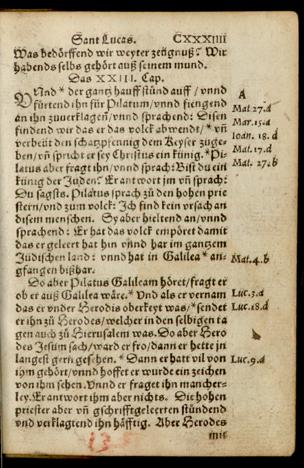 Sant Lucas. CXXXIIII
Was bedörffend wir weyter zeügnuß? Wir
habends selbs gehört auß seinem mund.
Das XXIII. Cap.
VNnd * der gantz hauff stůnd auff / vnnd
fůrtend ihn für Pilatum/ vnnd fiengend
an ihn zuuerklagen/ vnnd sprachend: Disen
findend wir das er das volck abwendt/ * vñ
verbeüt den schatzpfennig dem Keyser zuge-
ben/ vñ spricht er sey Christus ein künig. * Pi-
latus aber fragt ihn/ vnnd sprach: Bist du ein
künig der Juden? Er antwort jm vñ sprach:
Du sagsts. Pilatus sprach zů den hohen prie
stern/vnd zum volck: Ich find kein vrsach an
disem menschen. Sy aber hieltend an/vnnd
sprachend: Er hat das volck empört damit
das er geleert hat hin vnnd har im gantzem
Jüdischen land: vnnd hat in Galilea * an-
gfangen bißhar.
Do aber Pilatus Galileam höret/fragt er
ob er auß Galilea wäre. * Vnd als er vernam
das er vnder Herodis oberkeyt was/ * sendet
er ihn zů Herodes/welcher in den selbigen ta
gen auch zů Hierusalem was. Do aber Hero
des Jesum sach/ward er fro/dann er hette jn
langest gern gesehen. * Dann er hatt vil von
ihm gehört/ vnnd hoffet er wurde ein zeichen
von ihm sehen. Vnnd er fraget ihn mancher-
ley. Er antwort ihm aber nichts. Die hohen
priester aber vñ gschrifftgeleerten stůndend
vnd verklagtend ihn häfftig. Aber Herodes
mit
A
Mat. 27. a
Mar. 15. a
Ioan. 18. d
Mat. 17. d
Mat. 27. b
Mat. 4. b
Luc. 3. a
Luc. 18. d
Luc. 9. a